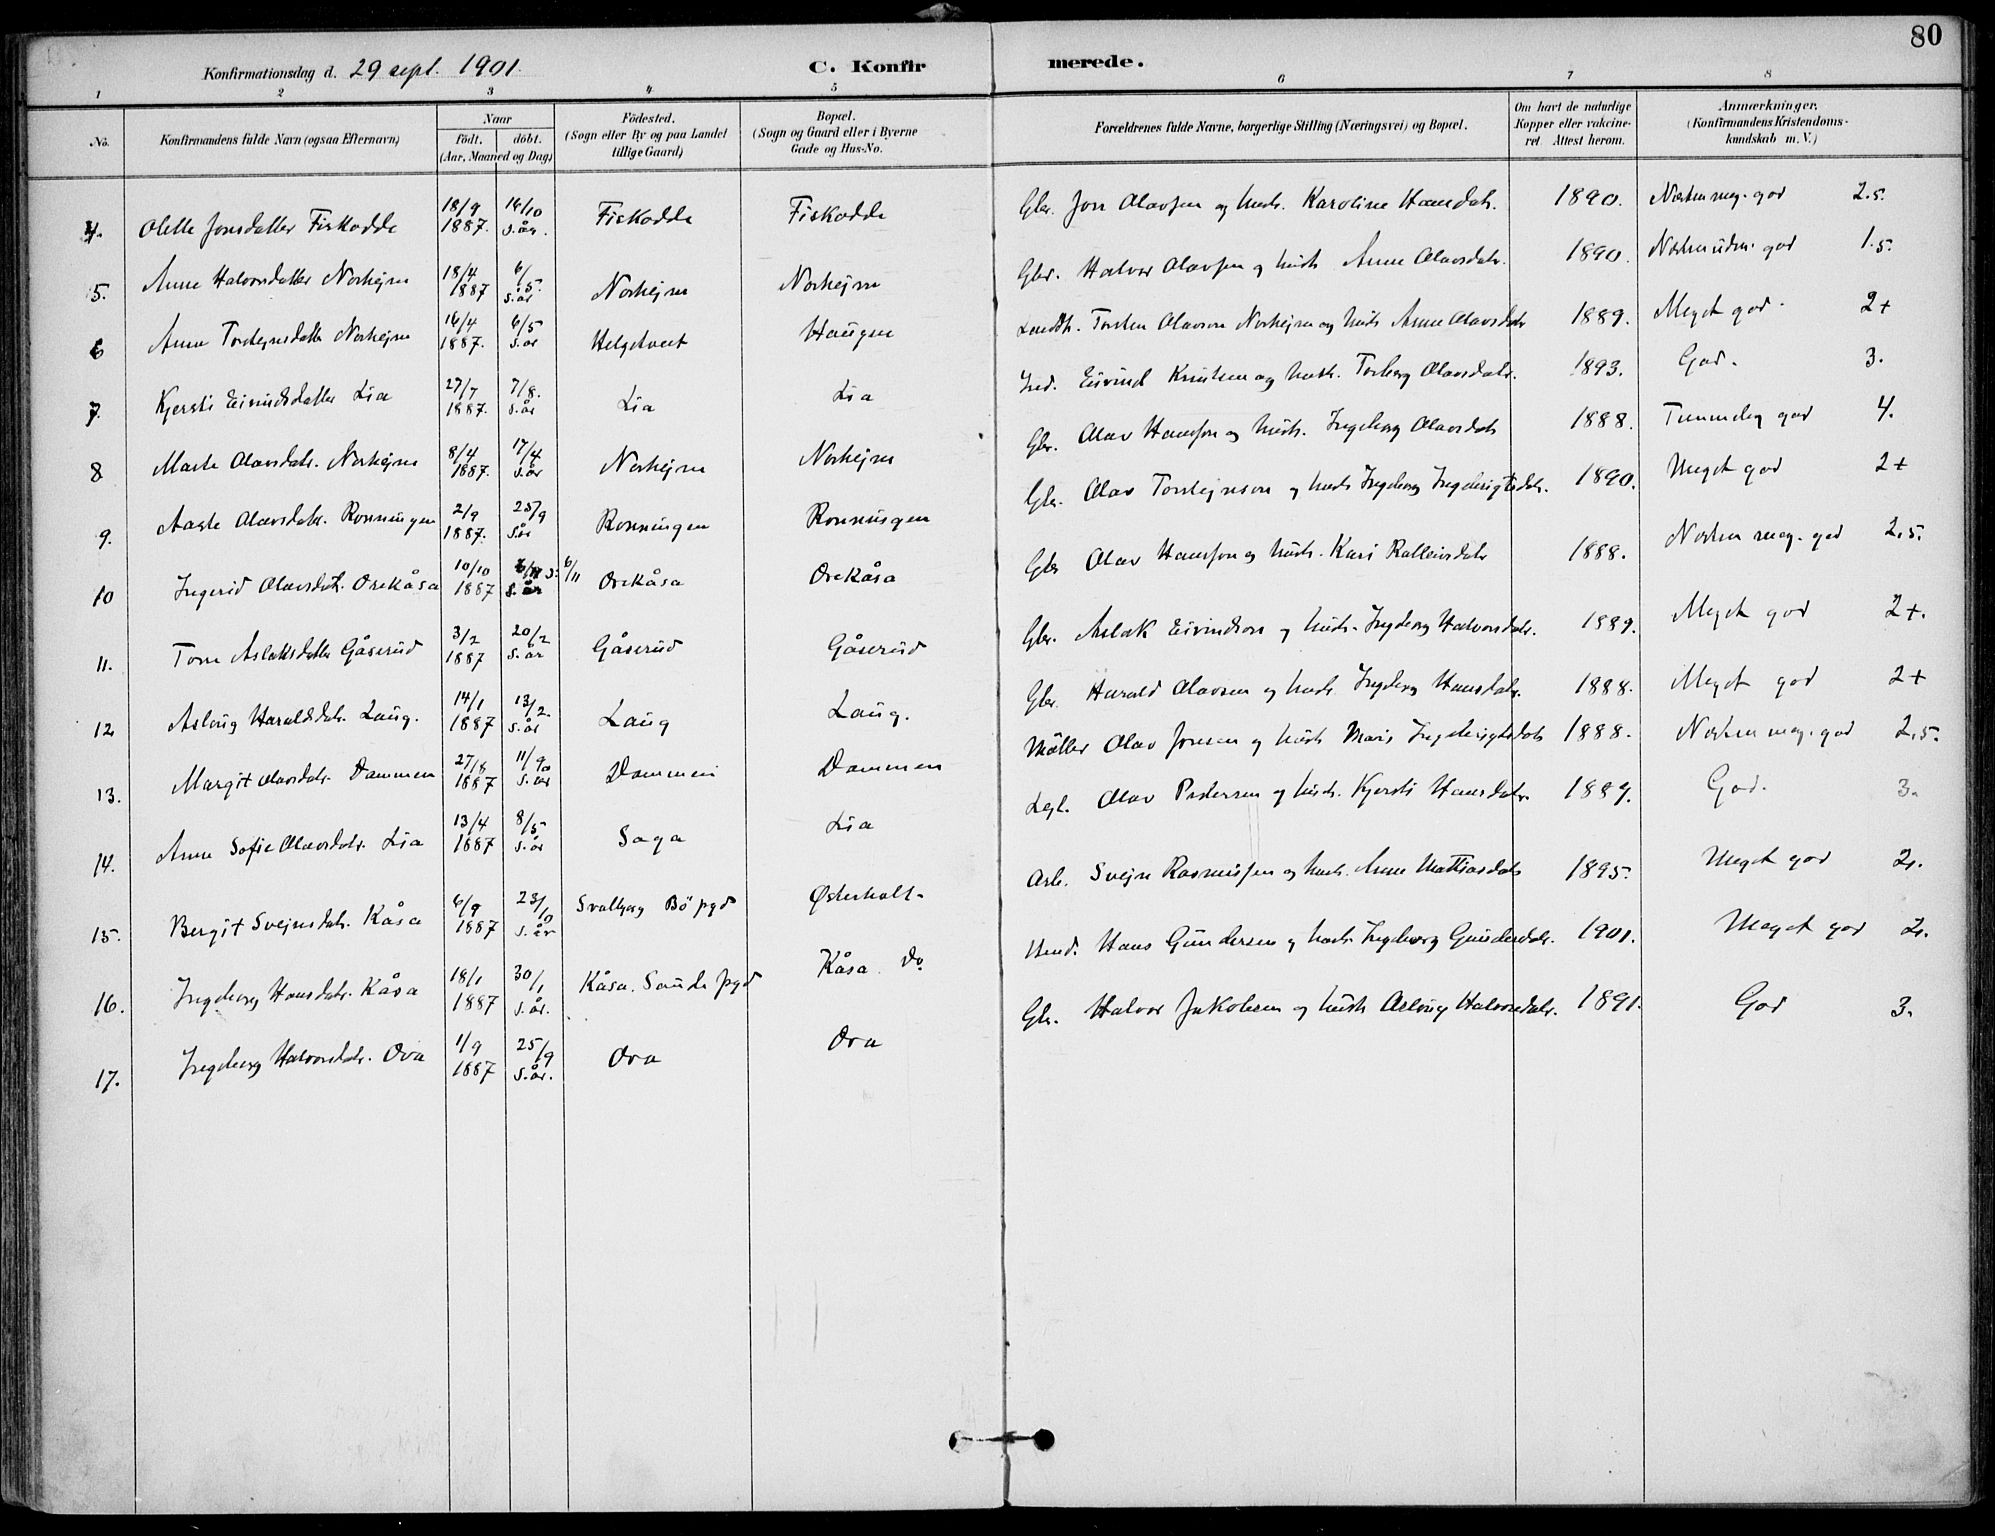 80
Konfirmationsdag d. 29 sept. 1901. C. Konfir merede.
1 2 3 4 5 6 7 8
No. Konfirmandens fulde Navn (ogsaa Efternavn) Naar født. døbt. (Aar, Maaned og Dag) Fødested. (Sogn eller By og paa Landet tillige Gaard) Bopæl. (Sogn og Gaard eller i Byerne Gade og Hus-No. Forældrenes fulde Navne, borgerlige Stilling (Næringsvei) og Bopæl. Om havt de naturlige Kopper eller vakcineret. Attest herom. Anmærkninger. (Konfirmandens Kristendomskundskab m. V.)
4. Olette Jonsdatter Fiskodde 18/9 1887. 16/10 s. år. Fiskodde Fiskodde Gbr. Jon Olavsen og hustr. Karoline Hansdatr. 1890. Næsten meg. god 2.5.
5. Anne Halvorsdatter Norhejm 18/4 1887 6/5. s. år Norhejm Norhejm Gbr. Halvor Olavsen og hustr. Anne Olavsdatr. 1890. Næsten udm. god 1.5.
6 Anne Torstejnsdatter Norhejm 16/4 1887. 6/5 s. år Helgetveit Haugen Torsten Olavson Norhejm og hustr Anne Olavsdatr 1889. Meget god. 2+
7. Kjersti Eivindsdatter Lia 27/7 1887. 7/8. s. år Lia Lia Eivind Knutsen og hustr. Torberg Olavsdatr. 1893. God. 3.
8 Marte Olavsdatr. Norhejm 8/4 1887. 17/4 s. år Norhejm Norhejm Gbr. Olav Hansson og hustr. Ingeborg Olavsdatr 1888. Temmelig god 4.
9. Aaste Olavsdatr. Rønningen 2/9 1887. 25/9 s. år Rønningen Rønningen Gbr. Olav Torstejnson og hustr Ingeborg Ingebrigtsdatr. 1890. Meget god 2+
10 Ingerid Olavsdatr. Orekåsa 10/10 1887 6/11 s. år 6/11 Orekåsa Orekåsa Gbr Olav Hansson og hustr. Kari Rolleivsdatr 1888. Næsten meg. god 2.5.
11. Tone Aslaksdatter Gåserud 3/2 1887 20/2 s. år Gåserud Gåserud Gbr. Aslak Eivindson og hustr. Ingeborg Halvorsdatr. 1889. Meget god 2+.
12 Aslaug Haraldsdatr. Laug. 14/1 1887 13/2. s. år Laug Laug. Gbr. Harald Olavsen og hustr. Ingeborg Hansdatr. 1888. Meget god 2+
13. Margit Olavsdatr. Dammen 27/8 1887 11/9 s. år Dammen Dammen Møller Olav Jonsen og hustr Maris Ingebrigtsdatr 1888. Næsten meg. god 2.5.
14. Anne Sofie Olavsdatr. Lia 13/4 1887 8/5 s. år Saga Lia Olav Pedersen og hustr. Kjersti Hansdatr. 1889. God. 3.
15. Bergit Svejnsdatr. Kåsa 6/9 1887 23/10 s. år Svalbjorg Bø pgd Østerholt. Arb. Svejn Rasmussen og hustr. Anne Mattiasdatr 1895. Meget god 2.
16. Ingeborg Hansdatr. Kåsa 18/1 1887 30/1 s. år. Kåsa. Saude pgd Kåsa. Do Hans Gundersen og hustr Ingeborg Gundersdatr. 1901. Meget god 2.
17. Ingeborg Halvorsdatr. Ova 1/9 1887 25/9 s. år. Ova Ova Gbr. Halvor Jakobsen og hustr Aslaug Halvorsdatr. 1891. God 3.